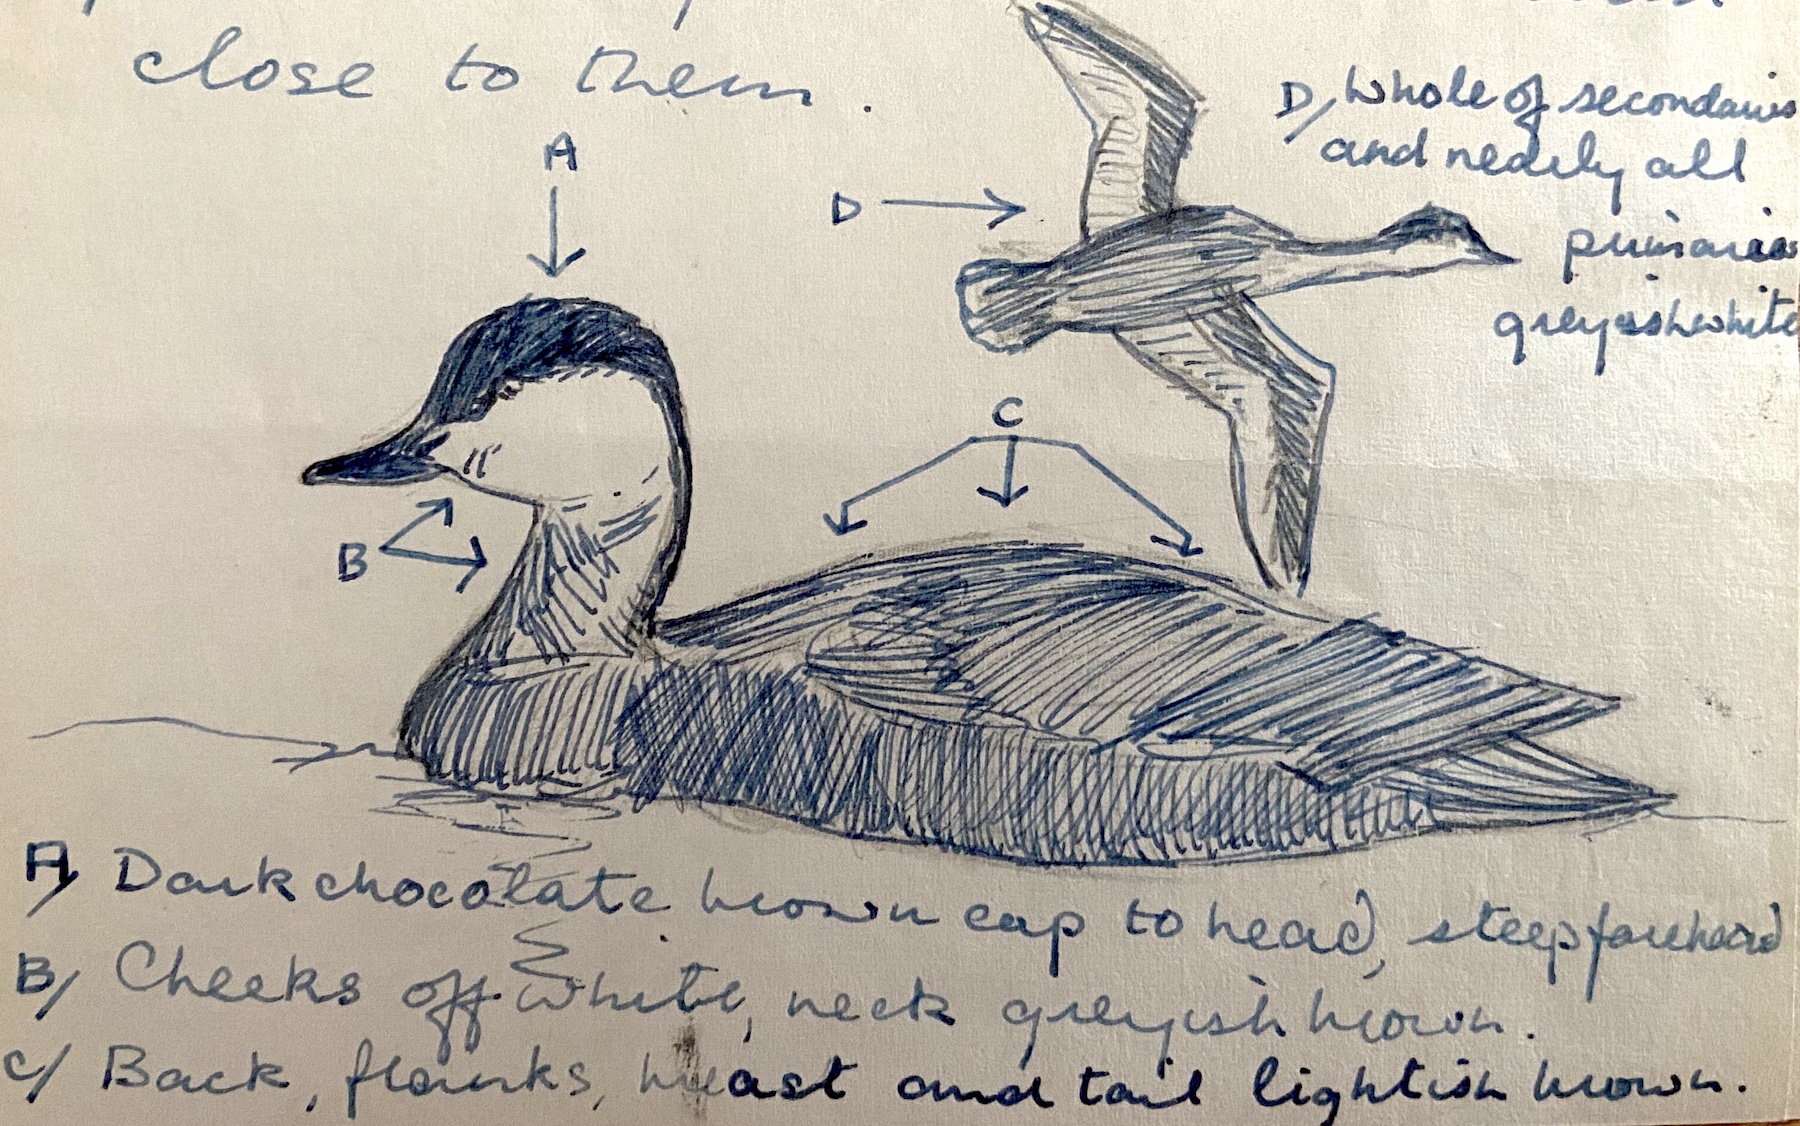 close to them.
A
D
D/ Whole of secondaries
and nearly all
primaries
greyish white
C
B
A/ Dark chocolate brown cap to head, steep forehead
B/ Cheeks off white, neck greyish brown.
C/ Back, flanks, breast and tail lightish brown.